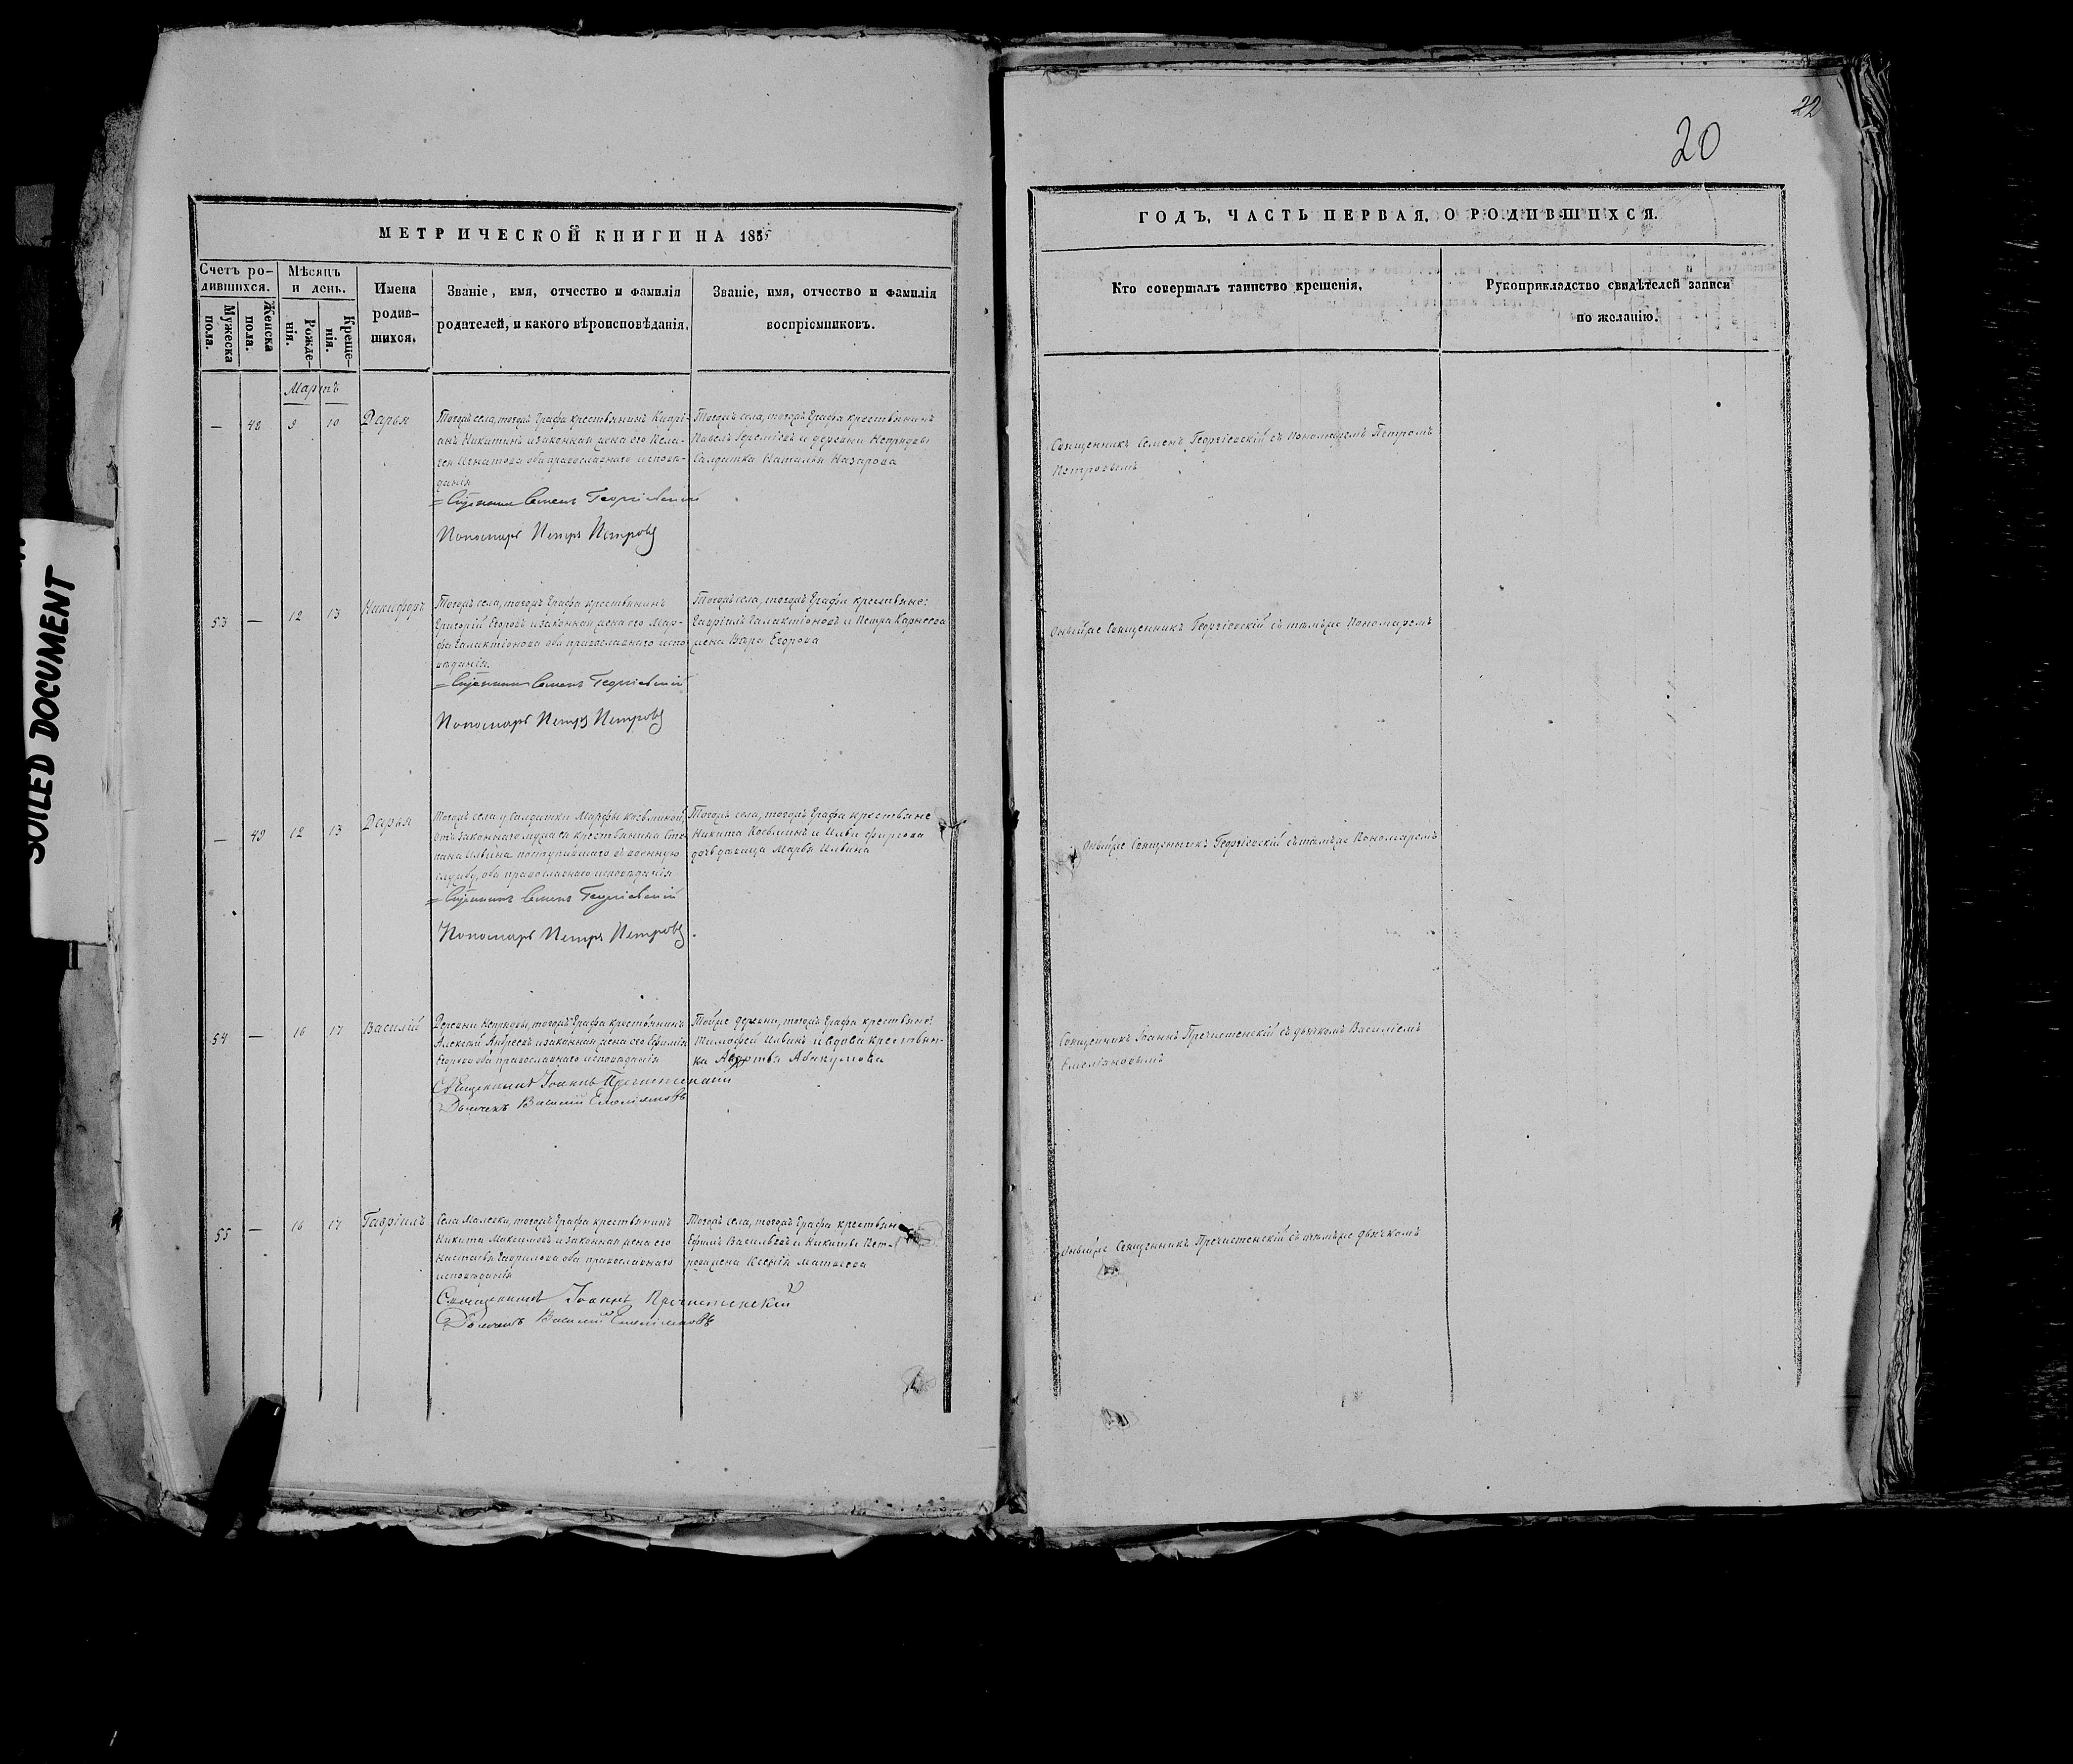 22
20
МЕТРИЧЕСКОЙ КНИГИ НА 1855
ГОДЪ, ЧАСТЬ ПЕРВАЯ, О РОДИВШИХСЯ.
Счетъ ро-
дившихся.
Мужеска
пола.
Женска
пола.
Мѣсяцъ
и день.
Рожде-
нія.
Креще-
нія.
Имена
родив-
шихся.
Званіе, имя, отчество и фамилія
родителей, и какого вѣроисповѣданія.
Званіе, имя, отчество и фамилія
воспріемниковъ.
Кто совершалъ таинство крещенія.
Рукоприкладство свидѣтелей записи
по желанію.
Мартъ
— 48 9 10 Дарья
Тогожъ села, тогожъ Графа крестьянинъ Кипрі-
анъ Никитинъ и законная жена его Пела-
гея Игнатова оба православнаго исповѣ-
данія
Священникъ Семенъ Георгіевскій
Пономарь Петръ Петровъ
Тогожъ села, тогожъ Графа крестьянинъ
Павелъ Еремѣевъ и деревни Непрядвы
Салдатка Наталья Назарова
Священникъ Семенъ Георгіевскій съ Пономаремъ Петромъ
Петровымъ
53 — 12 13 Никифоръ
Тогожъ села, тогожъ Графа крестьянинъ
Григорій Егоровъ и законная жена его Мар-
фа Галактіонова оба православнаго испо
вѣданія.
Священникъ Семенъ Георгіевскій
Пономарь Петръ Петровъ
Тогожъ села, тогожъ Графа крестьяне:
Гавріилъ Галактіоновъ и Петра Карнеева
жена Вара Егорова
Оный же Священникъ Георгіевскій съ тѣмъ же Пономаремъ
— 49 12 13 Дарья
Тогожъ села у Салдатки Марфы Козьминой,
отъ законнаго мужа ея крестьянина Сте
пана Ильина поступившаго въ военную
службу, оба православнаго исповѣданія
Священникъ Семенъ Георгіевскій
Пономарь Петръ Петровъ
Тогожъ села, тогожъ Графа крестьяне
Никита Козьминъ и Ильи Фирсова
дочь дѣвица Марья Ильина
Оный же Священникъ Георгіевскій съ тѣмъ же Пономаремъ
54 — 16 17 Василій
Деревни Непрядвы, тогожъ Графа крестьянинъ
Алексѣй Андреевъ и законная жена его Ефимія
Егорова оба православнаго исповѣданія
Священникъ Іоаннъ Пречистенскій
Дьячекъ Василій Емельяновъ
Той же деревни, тогожъ Графа крестьяне:
Тимофей Ильинъ и вдова крестьян-
ка Авдотья Абакумова
Священникъ Іоаннъ Пречистенскій съ дьячкомъ Василіемъ
Емельяновымъ
55 — 16 17 Гавріилъ
Села Малевки, тогожъ Графа крестьянинъ
Никита Максимовъ и законная жена его
Настасья Гаврилова оба православнаго
исповѣданія
Священникъ Іоаннъ Пречистенскій
Дьячекъ Василій Емельяновъ
Тогожъ села, тогожъ Графа крестьяне
Ефимъ Васильевъ и Никиты Пет-
рова жена Ксенія Матвеева
Оный же Священникъ Пречистенскій съ тѣмъ же дьячкомъ
SOILED DOCUMENT